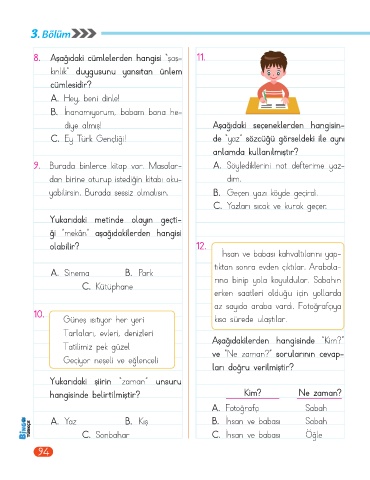 3. Bölüm
8. Aşağıdaki cümlelerden hangisi "şaş-
kınlık" duygusunu yansıtan ünlem
cümlesidir?
A. Hey, beni dinle!
B. İnanamıyorum, babam bana he-
diye almış!
C. Ey Türk Gençliği!
9. Burada binlerce kitap var. Masalar-
dan birine oturup istediğin kitabı oku-
yabilirsin. Burada sessiz olmalısın.
Yukarıdaki metinde olayın geçti-
ği "mekân" aşağıdakilerden hangisi
olabilir?
A. Sinema B. Park
C. Kütüphane
10.
Güneş ısıtıyor her yeri
Tarlaları, evleri, denizleri
Tatilimiz pek güzel
Geçiyor neşeli ve eğlenceli
Yukarıdaki şiirin "zaman" unsuru
hangisinde belirtilmiştir?
A. Yaz B. Kış
C. Sonbahar
11.
Aşağıdaki seçeneklerden hangisin-
de "yaz" sözcüğü görseldeki ile aynı
anlamda kullanılmıştır?
A. Söylediklerini not defterime yaz-
dım.
B. Geçen yazı köyde geçirdi.
C. Yazları sıcak ve kurak geçer.
12.
İhsan ve babası kahvaltılarını yap-
tıktan sonra evden çıktılar. Arabala-
rına binip yola koyuldular. Sabahın
erken saatleri olduğu için yollarda
az sayıda araba vardı. Fotoğrafçıya
kısa sürede ulaştılar.
Aşağıdakilerden hangisinde "Kim?"
ve "Ne zaman?" sorularının cevap-
ları doğru verilmiştir?
Kim? Ne zaman?
A. Fotoğrafçı Sabah
B. İhsan ve babası Sabah
C. İhsan ve babası Öğle
94